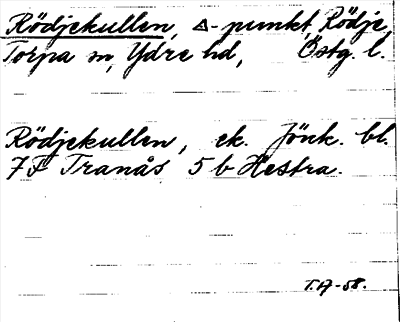 Rödjekullen, △-punkt, Rödje,
Torpa sn, Ydre hd, Östg. l.
Rödjekullen, ek. Jönk. bl.
7F Tranås 5 b Hestra.
T.A-58.